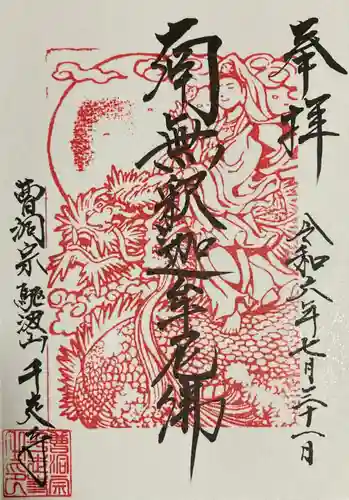 奉拝
令和六年七月二十一日
南無釈迦牟尼佛
曹洞宗 龍海山 千光寺